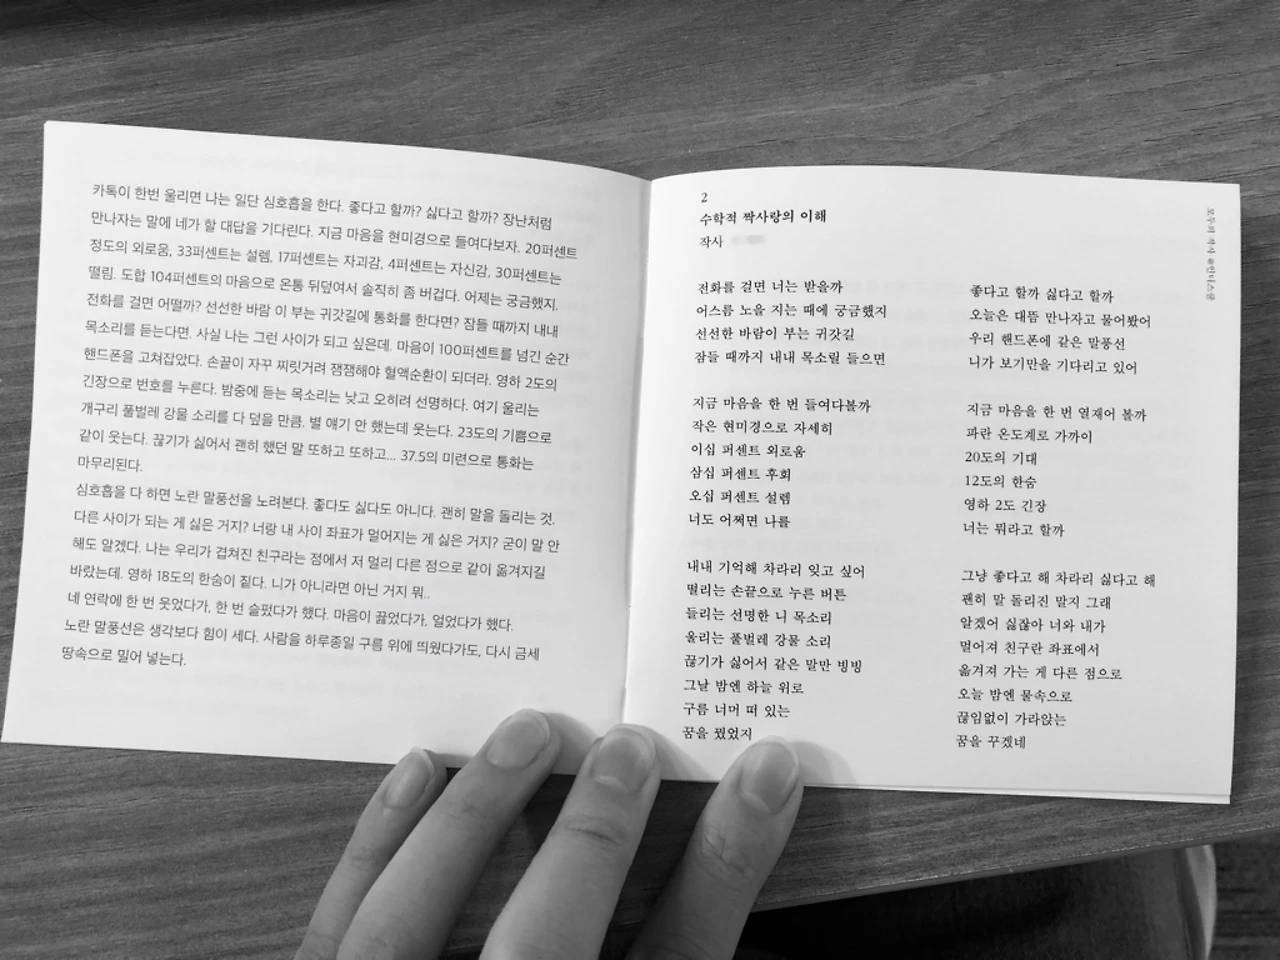 카톡이 한번 울리면 나는 일단 심호흡을 한다. 좋다고 할까? 싫다고 할까? 장난처럼
만나자는 말에 네가 할 대답을 기다린다. 지금 마음을 현미경으로 들여다보자. 20퍼센트
정도의 외로움, 33퍼센트는 설렘, 17퍼센트는 자괴감, 4퍼센트는 자신감, 30퍼센트는
떨림. 도합 104퍼센트의 마음으로 온통 뒤덮여서 솔직히 좀 버겁다. 어제는 궁금했지.
전화를 걸면 어떨까? 선선한 바람 이 부는 귀갓길에 통화를 한다면? 잠들 때까지 내내
목소리를 듣는다면. 사실 나는 그런 사이가 되고 싶은데. 마음이 100퍼센트를 넘긴 순간
핸드폰을 고쳐잡았다. 손끝이 자꾸 찌릿거려 잼잼해야 혈액순환이 되더라. 영하 2도의
긴장으로 번호를 누른다. 밤중에 듣는 목소리는 낮고 오히려 선명하다. 여기 울리는
개구리 풀벌레 강물 소리를 다 덮을 만큼. 별 얘기 안 했는데 웃는다. 23도의 기쁨으로
같이 웃는다. 끊기가 싫어서 괜히 했던 말 또하고 또하고... 37.5의 미련으로 통화는
마무리된다.
심호흡을 다 하면 노란 말풍선을 노려본다. 좋다도 싫다도 아니다. 괜히 말을 돌리는 것.
다른 사이가 되는 게 싫은 거지? 너랑 내 사이 좌표가 멀어지는 게 싫은 거지? 굳이 말 안
해도 알겠다. 나는 우리가 겹쳐진 친구라는 점에서 저 멀리 다른 점으로 같이 옮겨지길
바랐는데. 영하 18도의 한숨이 짙다. 니가 아니라면 아닌 거지 뭐..
네 연락에 한 번 웃었다가, 한 번 슬펐다가 했다. 마음이 끓었다가, 얼었다가 했다.
노란 말풍선은 생각보다 힘이 세다. 사람을 하루종일 구름 위에 띄웠다가도, 다시 금세
땅속으로 밀어 넣는다.
2
수학적 짝사랑의 이해
작사
전화를 걸면 너는 받을까
어스름 노을 지는 때에 궁금했지
선선한 바람이 부는 귀갓길
잠들 때까지 내내 목소릴 들으면
지금 마음을 한 번 들여다볼까
작은 현미경으로 자세히
이십 퍼센트 외로움
삼십 퍼센트 후회
오십 퍼센트 설렘
너도 어쩌면 나를
내내 기억해 차라리 잊고 싶어
떨리는 손끝으로 누른 버튼
들리는 선명한 니 목소리
울리는 풀벌레 강물 소리
끊기가 싫어서 같은 말만 빙빙
그날 밤엔 하늘 위로
구름 너머 떠 있는
꿈을 꿨었지
좋다고 할까 싫다고 할까
오늘은 대뜸 만나자고 물어봤어
우리 핸드폰에 같은 말풍선
니가 보기만을 기다리고 있어
지금 마음을 한 번 열재어 볼까
파란 온도계로 가까이
20도의 기대
12도의 한숨
영하 2도 긴장
너는 뭐라고 할까
그냥 좋다고 해 차라리 싫다고 해
괜히 말 돌리진 말지 그래
알겠어 싫잖아 너와 내가
멀어져 친구란 좌표에서
옮겨져 가는 게 다른 점으로
오늘 밤엔 물속으로
끊임없이 가라앉는
꿈을 꾸겠네